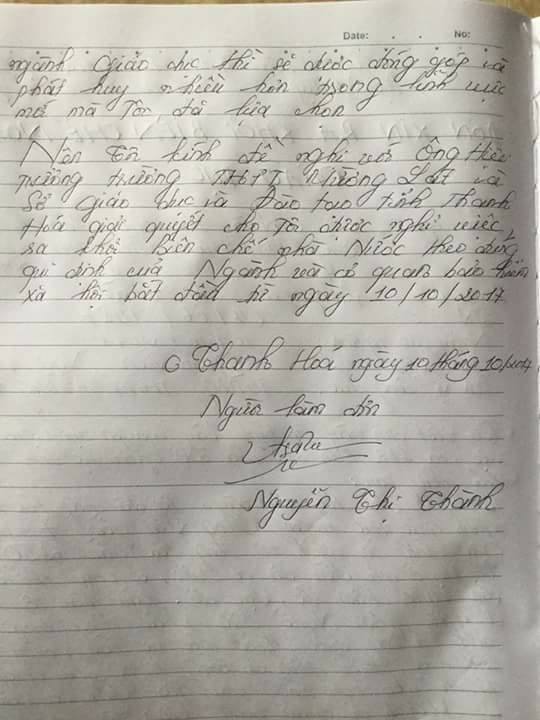 Date: . . No:
ngành Giáo dục thì sẽ được đóng góp và
phát huy nhiều hơn trong lĩnh vực
mới mà Tôi đã lựa chọn
Nên Tôi kính đề nghị với Ông Hiệu
trưởng trường THPT Mường Lát và
Sở Giáo dục và Đào tạo tỉnh Thanh
Hoá giải quyết cho Tôi được nghỉ việc
ra khỏi biên chế nhà Nước theo đúng
qui định của Ngành và cơ quan bảo hiểm
xã hội bắt đầu từ ngày 10/10/2017
Thanh Hoá ngày 10 tháng 10/2017
Người làm đơn
Nguyễn Thị Thành